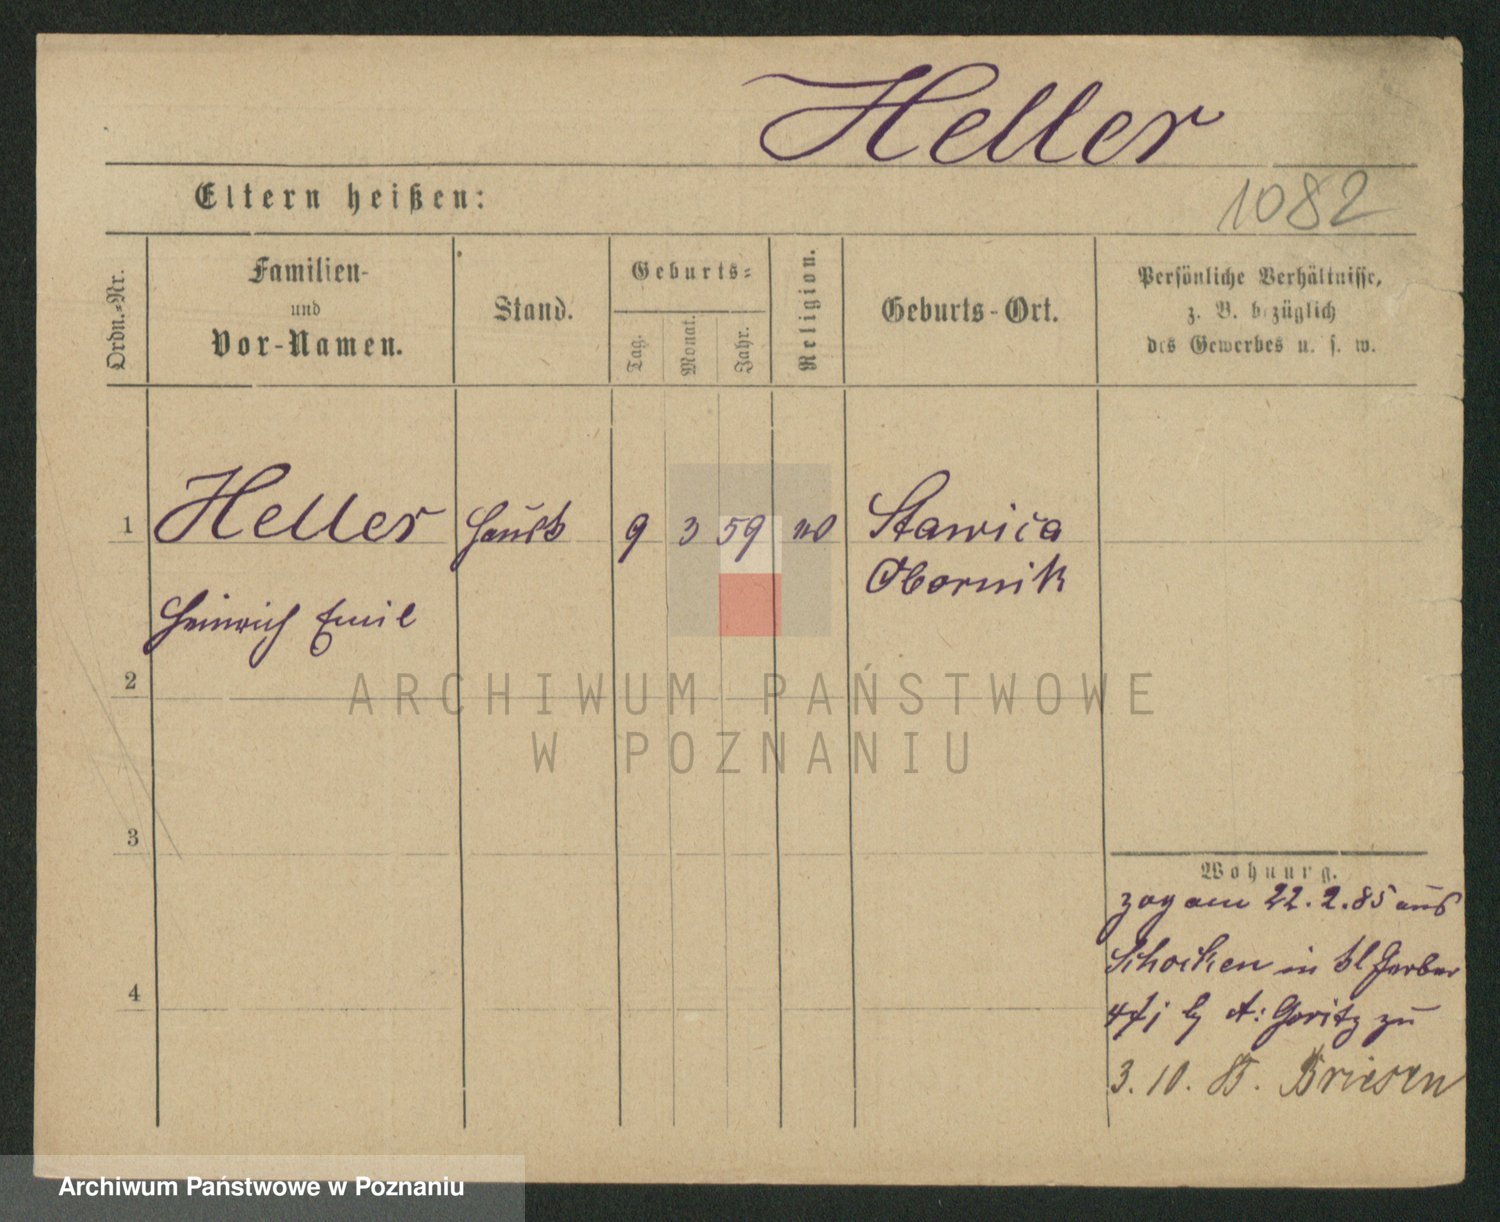 Heller
Eltern heißen:
1082
Ordn.-Nr.
Familien-
und
Vor-Namen.
Stand.
Geburts-
Tag.
Monat.
Jahr.
Religion.
Geburts-Ort.
Persönliche Verhältnisse,
z. B. bezüglich
des Gewerbes u. s. w.
1 Heller 9 3 59 Stawica
Obornik
Heinrich Emil
2
ARCHIWUM PAŃSTWOWE
W POZNANIU
3
Wohnung.
zog am 22.2.85 aus
Schocken in kl Gerber
4
A: Goritz zu
3.10.85. Briesen
Archiwum Państwowe w Poznaniu